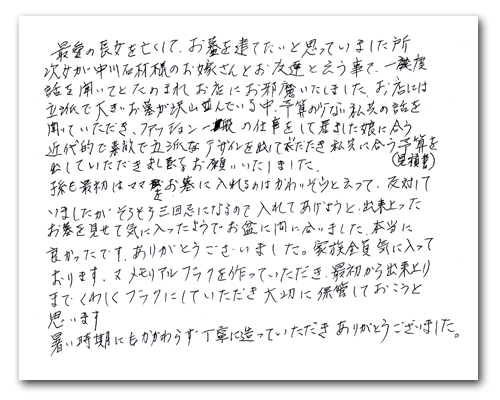 最愛の長女を亡くして、お墓を建てたいと思っていました所
次女が中川石材様のお嫁さんとお友達と云う事で、一度
話を聞いてとたのまれ お店にお邪魔いたしました。お店には
立派で大きいお墓が沢山並んでいる中、予算の少ない私共の話を
聞いていただき、ファッション一般の仕事をして居ました娘に合う
近代的で素敵で立派なデザインを出して頂いただき私共に合う予算を
(見積書)
出していただきましたのでお願いいたしました。
孫も最初はママをお墓に入れるのはかわいそうと云って、反対して
いましたがそろそろ三回忌になるので入れてあげようと、出来上った
お墓を見せて気に入ったようでお盆に間に合いました、本当に
良かったです、ありがとうございました。家族全員気に入って
おります、又メモリアルブックを作っていただき、最初から出来上り
までくわしくブックにしていただき大切に保管しておこうと
思います
暑い時期にもかかわらず丁寧に造っていただきありがとうございました。